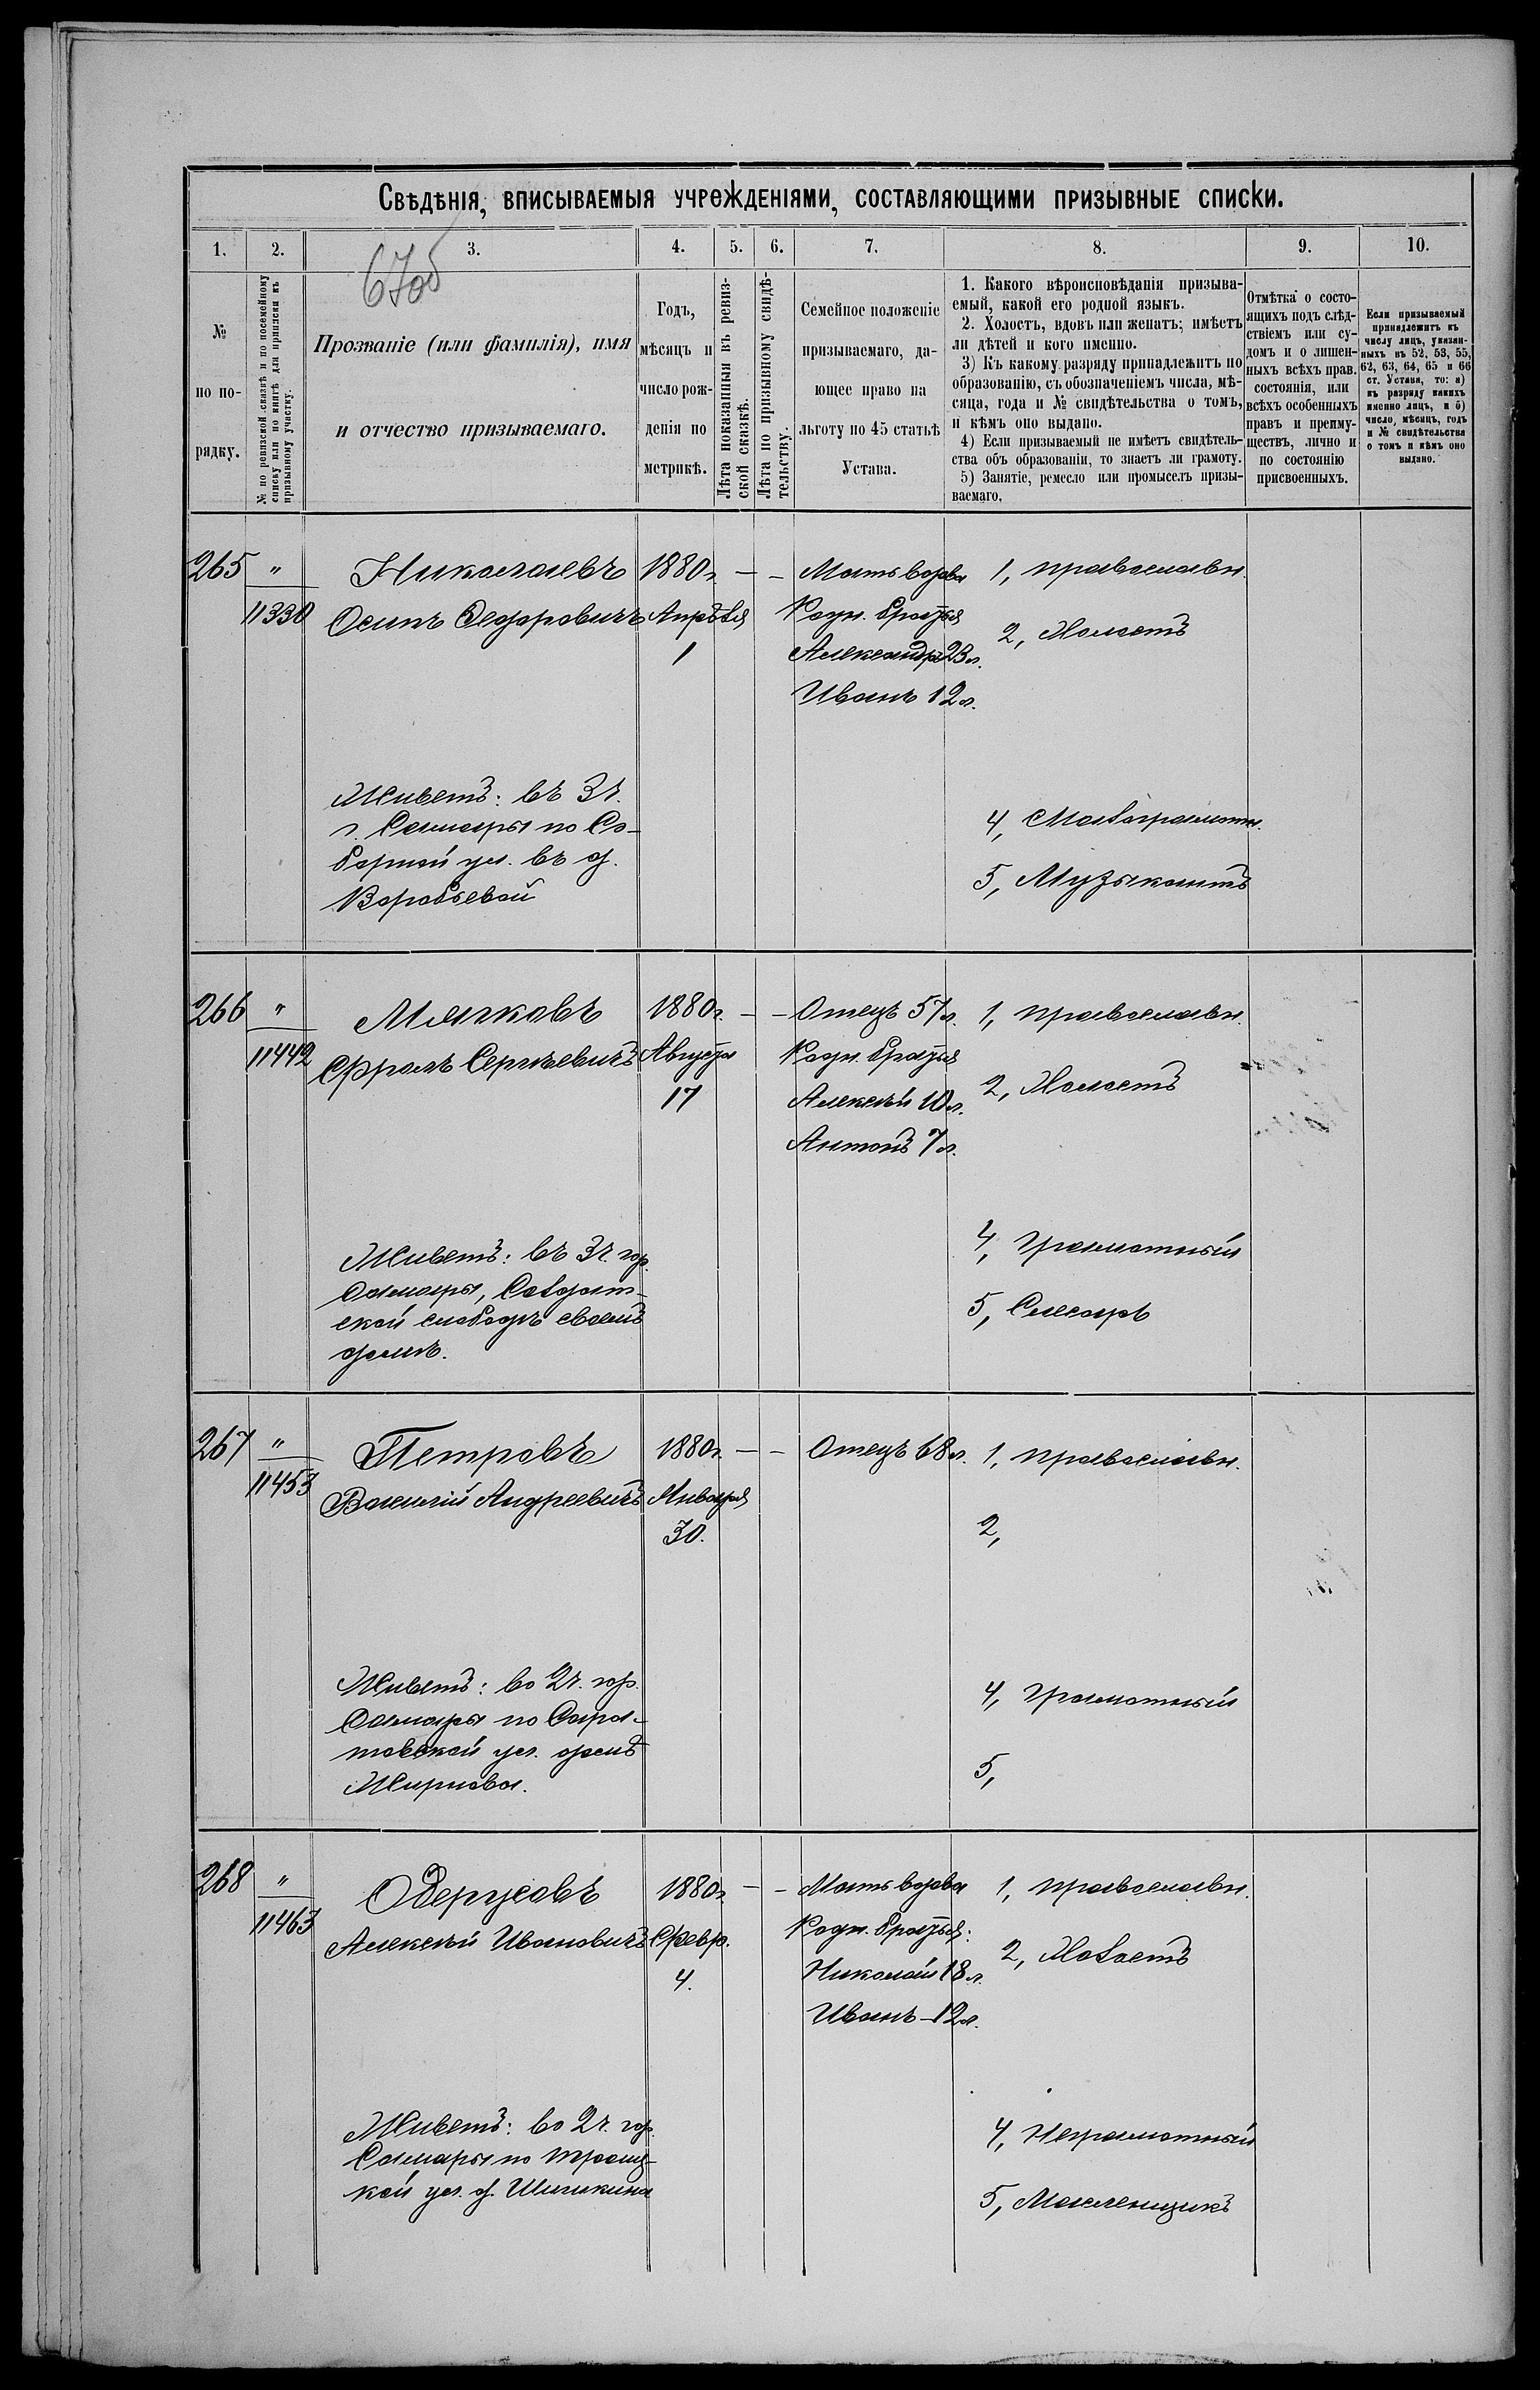 67об
Свѣдѣнія, вписываемыя учрежденіями, составляющими призывные списки.
1. 2. 3. 4. 5. 6. 7. 8. 9. 10.
№
по по-
рядку.
№ по ревизской сказкѣ и по посемейному
списку или по книгѣ для приписки къ
призывному участку.
Прозваніе (или фамилія), имя
и отчество призываемаго.
Годъ,
мѣсяцъ и
число рож-
денія по
метрикѣ.
Лѣта показанныя въ ревиз-
ской сказкѣ.
Лѣта по призывному свидѣ-
тельству.
Семейное положеніе
призываемаго, да-
ющее право на
льготу по 45 статьѣ
Устава.
1. Какого вѣроисповѣданія призыва-
емый, какой его родной языкъ.
2. Холостъ, вдовъ или женатъ; имѣетъ
ли дѣтей и кого именно.
3) Къ какому разряду принадлежитъ по
образованію, съ обозначеніемъ числа, мѣ-
сяца, года и № свидѣтельства о томъ,
и кѣмъ оно выдано.
4) Если призываемый не имѣетъ свидѣтель-
ства объ образованіи, то знаетъ ли грамоту.
5) Занятіе, ремесло или промыселъ призы-
ваемаго.
Отмѣтка о состо-
ящихъ подъ слѣд-
ствіемъ или су-
домъ и о лишен-
ныхъ всѣхъ прав.
состоянія, или
всѣхъ особенныхъ
правъ и преиму-
ществъ, лично и
по состоянію
присвоенныхъ.
Если призываемый
принадлежитъ къ
числу лицъ, указан-
ныхъ въ 52, 53, 55,
62, 63, 64, 65 и 66
ст. Устава, то: а)
къ разряду какихъ
именно лицъ, и б)
число, мѣсяцъ, годъ
и № свидѣтельства
о томъ и кѣмъ оно
выдано.
265 " Николаевъ 1880г. — — Мать вдова 1, православн.
11330 Осипъ Федоровичъ Апрѣля Родн. братья
1 Александръ 23 л. 2, Холостъ
Иванъ 12 л.
Живетъ: въ 3 ч.
г. Самары по Со-
борной ул. въ д.
Воробьевой
4, Малограмотн.
5, Музыкантъ
266 " Мягковъ 1880г. — — Отецъ 57 л. 1, православн.
11442 Фролъ Сергѣевичъ Августа Родн. братья
17 Алексѣй 10 л. 2, Холостъ
Антонъ 7 л.
Живетъ: въ 3 ч. гор.
Самары, Солдат-
ской слободѣ своемъ
домѣ.
4, Грамотный
5, Слесарь
267 " Петровъ 1880г. — — Отецъ 68 л. 1, православн.
11453 Василій Андреевичъ Января
30. 2,
Живетъ: во 2 ч. гор.
Самары по Сара-
товской ул. домъ
Жирнова.
4, Грамотный
5,
268 " 1880г. — — Мать вдова 1, православн.
11463 Алексѣй Ивановичъ Февр. Родн. братья:
4. Николай 18 л. 2, Холостъ
Иванъ — 12 л.
Живетъ: во 2 ч. гор.
Самары по Троиц-
кой ул. д. Шишкина
4, Неграмотный
5, Масленщикъ